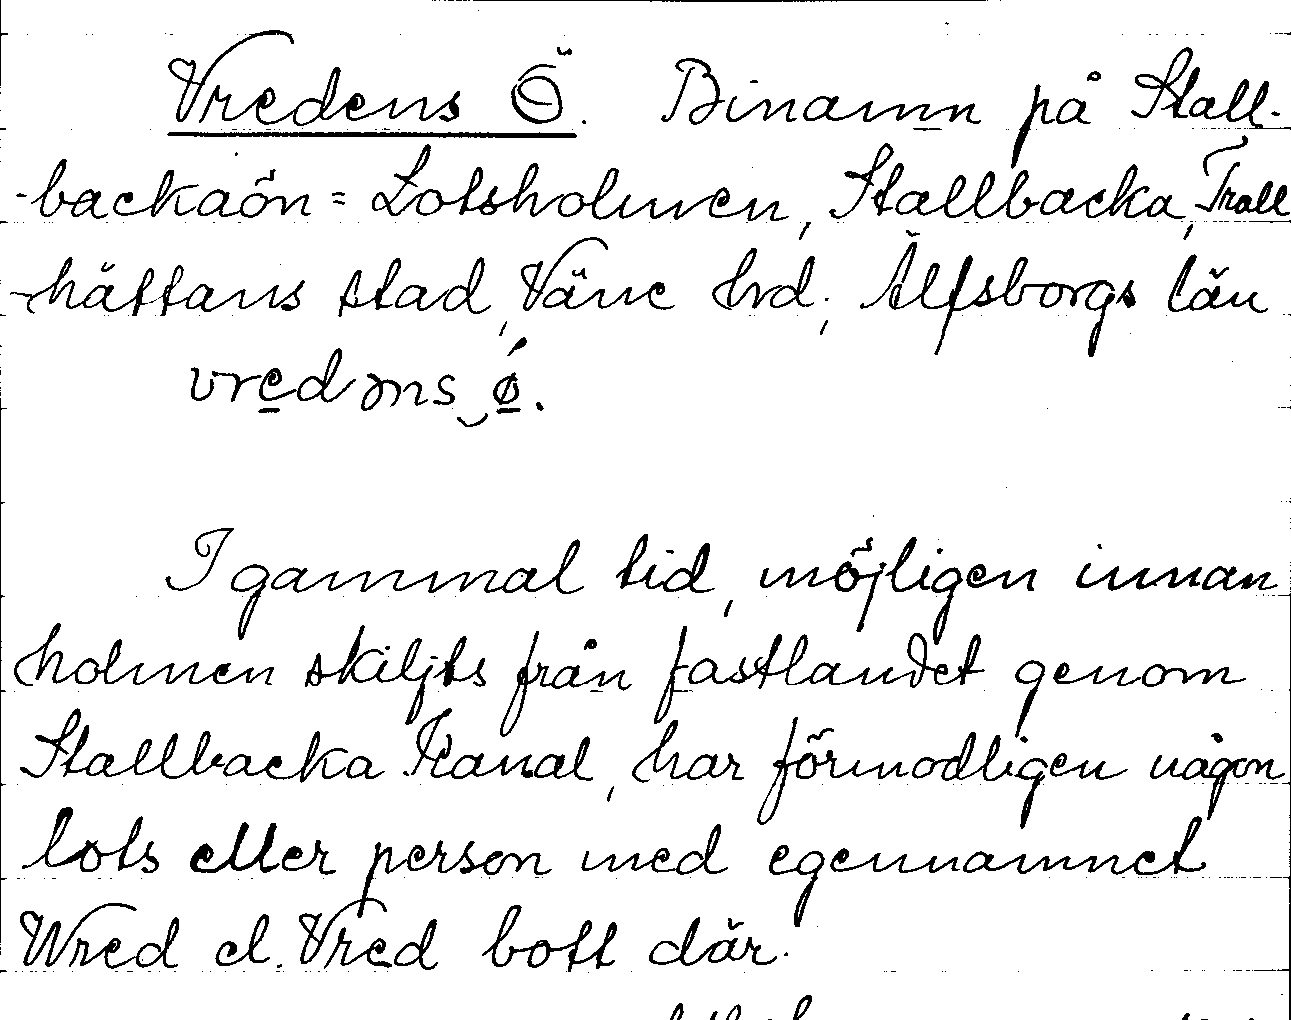 Vredens Ö. Binamn på Stall-
-backaön = Lotsholmen, Stallbacka, Troll
-hättans stad, Väne hrd, Älfsborgs län
vredəns‿ǿ.
I gammal tid, möjligen innan
holmen skiljts från fastlandet genom
Stallbacka Kanal, har förmodligen någon
lots eller person med egennamnet
Wred el. Vred bott där.